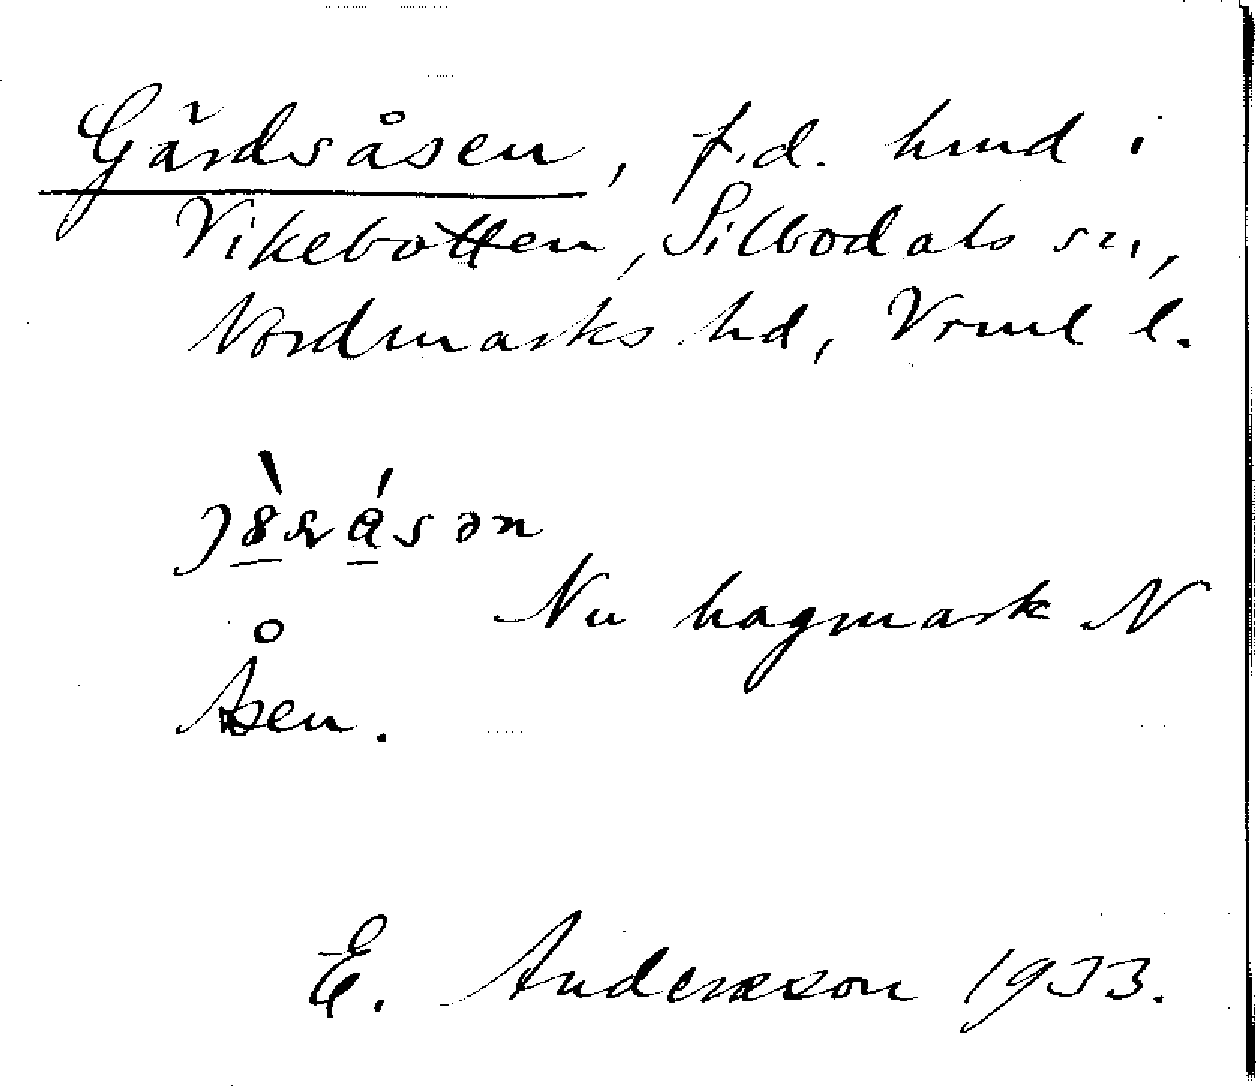 Gärdsåsen, f.d. hmd i
Vikebotten, Silbodals sn,
Nordmarks hd, Vrml l.
Nu hagmark N
Åsen.
E. Andersson 1933.